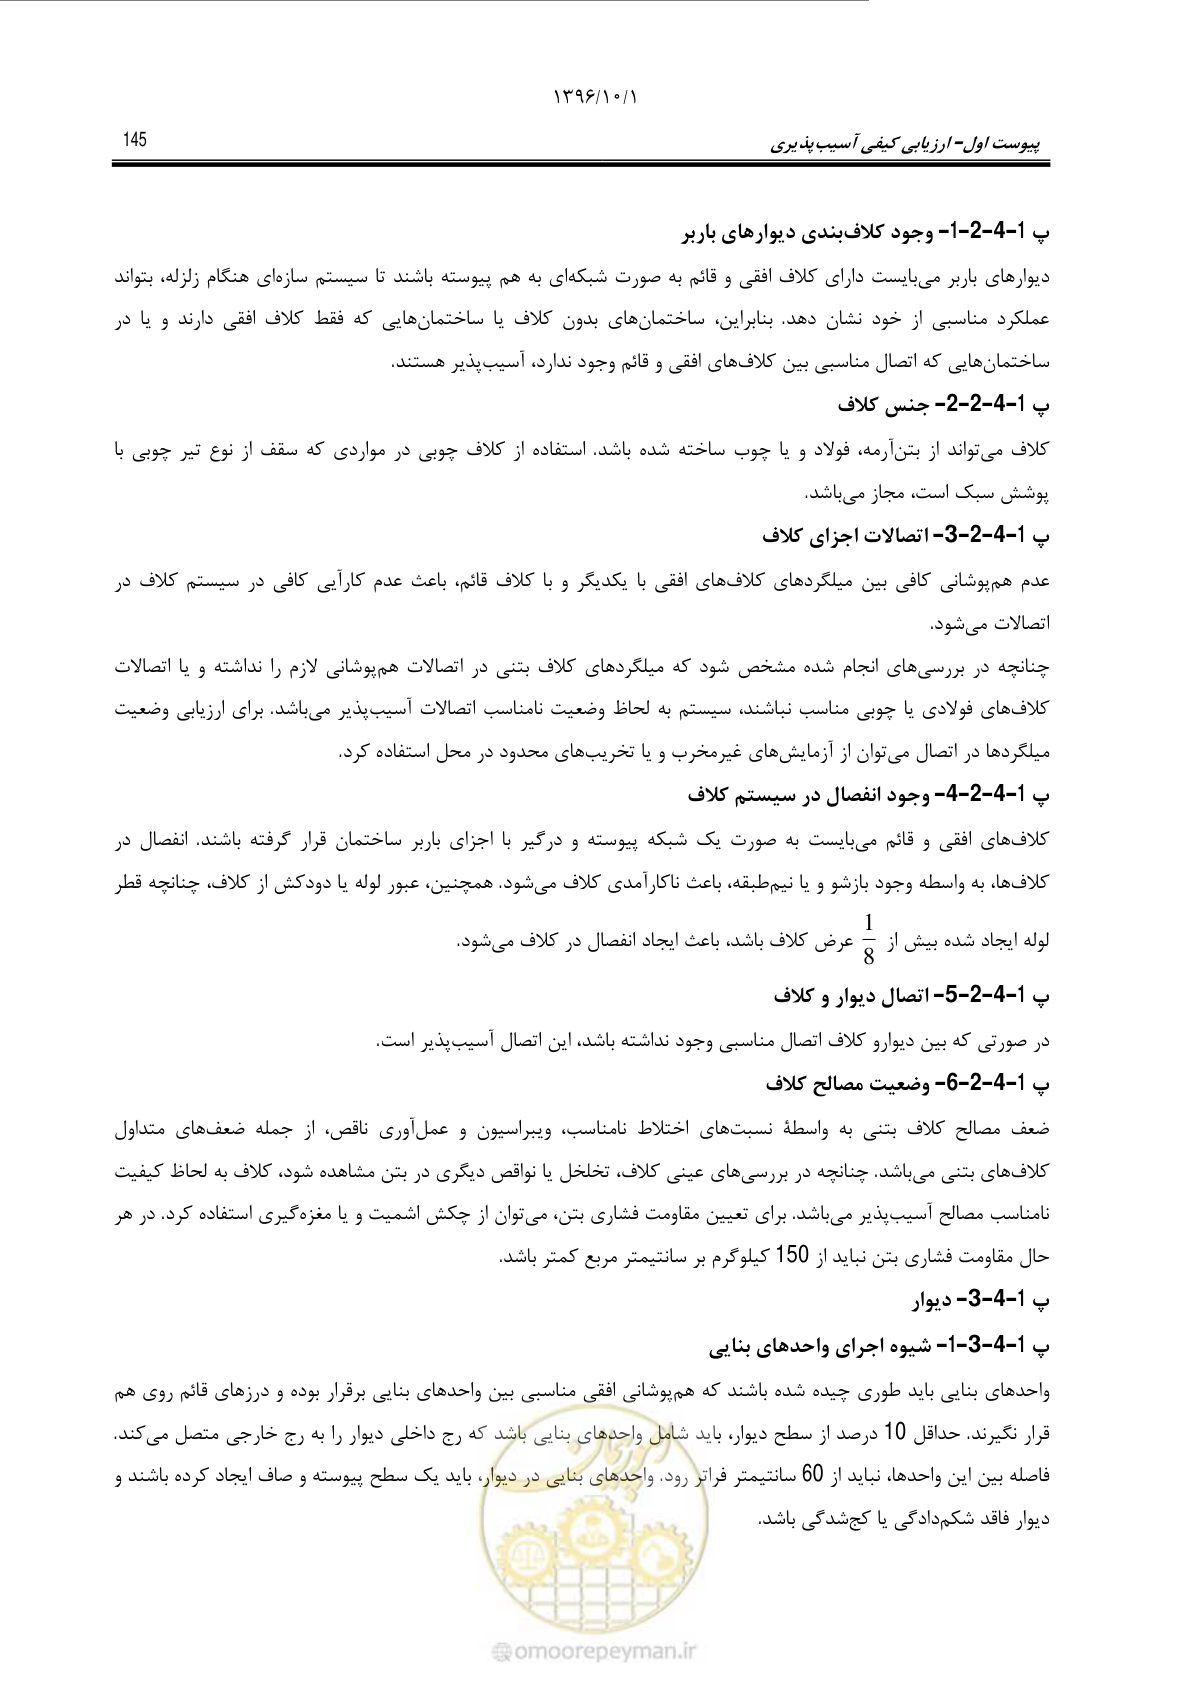 ۱۳۹۶/۱۰/۱
پیوست اول- ارزیابی کیفی آسیب‌پذیری
145
پ 1-4-2-1- وجود کلاف‌بندی دیوارهای باربر
دیوارهای باربر می‌بایست دارای کلاف افقی و قائم به صورت شبکه‌ای به هم پیوسته باشند تا سیستم سازه‌ای هنگام زلزله، بتواند
عملکرد مناسبی از خود نشان دهد. بنابراین، ساختمان‌های بدون کلاف یا ساختمان‌هایی که فقط کلاف افقی دارند و یا در
ساختمان‌هایی که اتصال مناسبی بین کلاف‌های افقی و قائم وجود ندارد، آسیب‌پذیر هستند.
پ 1-4-2-2- جنس کلاف
کلاف می‌تواند از بتن‌آرمه، فولاد و یا چوب ساخته شده باشد. استفاده از کلاف چوبی در مواردی که سقف از نوع تیر چوبی با
پوشش سبک است، مجاز می‌باشد.
پ 1-4-2-3- اتصالات اجزای کلاف
عدم هم‌پوشانی کافی بین میلگردهای کلاف‌های افقی با یکدیگر و با کلاف قائم، باعث عدم کارآیی کافی در سیستم کلاف در
اتصالات می‌شود.
چنانچه در بررسی‌های انجام شده مشخص شود که میلگردهای کلاف بتنی در اتصالات هم‌پوشانی لازم را نداشته و یا اتصالات
کلاف‌های فولادی یا چوبی مناسب نباشند، سیستم به لحاظ وضعیت نامناسب اتصالات آسیب‌پذیر می‌باشد. برای ارزیابی وضعیت
میلگردها در اتصال می‌توان از آزمایش‌های غیرمخرب و یا تخریب‌های محدود در محل استفاده کرد.
پ 1-4-2-4- وجود انفصال در سیستم کلاف
کلاف‌های افقی و قائم می‌بایست به صورت یک شبکه پیوسته و درگیر با اجزای باربر ساختمان قرار گرفته باشند. انفصال در
کلاف‌ها، به واسطه وجود بازشو و یا نیم‌طبقه، باعث ناکارآمدی کلاف می‌شود. همچنین، عبور لوله یا دودکش از کلاف، چنانچه قطر
لوله ایجاد شده بیش از 1/8 عرض کلاف باشد، باعث ایجاد انفصال در کلاف می‌شود.
پ 1-4-2-5- اتصال دیوار و کلاف
در صورتی که بین دیوارو کلاف اتصال مناسبی وجود نداشته باشد، این اتصال آسیب‌پذیر است.
پ 1-4-2-6- وضعیت مصالح کلاف
ضعف مصالح کلاف بتنی به واسطۀ نسبت‌های اختلاط نامناسب، ویبراسیون و عمل‌آوری ناقص، از جمله ضعف‌های متداول
کلاف‌های بتنی می‌باشد. چنانچه در بررسی‌های عینی کلاف، تخلخل یا نواقص دیگری در بتن مشاهده شود، کلاف به لحاظ کیفیت
نامناسب مصالح آسیب‌پذیر می‌باشد. برای تعیین مقاومت فشاری بتن، می‌توان از چکش اشمیت و یا مغزه‌گیری استفاده کرد. در هر
حال مقاومت فشاری بتن نباید از 150 کیلوگرم بر سانتیمتر مربع کمتر باشد.
پ 1-4-3- دیوار
پ 1-4-3-1- شیوه اجرای واحدهای بنایی
واحدهای بنایی باید طوری چیده شده باشند که هم‌پوشانی افقی مناسبی بین واحدهای بنایی برقرار بوده و درزهای قائم روی هم
قرار نگیرند. حداقل 10 درصد از سطح دیوار، باید شامل واحدهای بنایی باشد که رج داخلی دیوار را به رج خارجی متصل می‌کند.
فاصله بین این واحدها، نباید از 60 سانتیمتر فراتر رود. واحدهای بنایی در دیوار، باید یک سطح پیوسته و صاف ایجاد کرده باشند و
دیوار فاقد شکم‌دادگی یا کج‌شدگی باشد.
امور پیمان
omoorepeyman.ir